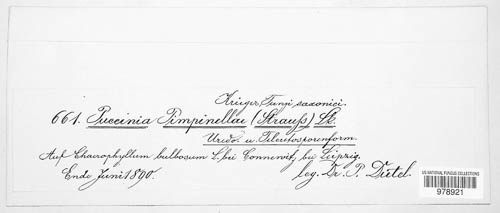 Krieger, Fungi saxonici.
661. Puccinia Pimpinellae (Strauſs) Lk.
Uredo- u. Teleutosporenform.
Auf Chaerophyllum bulbosum L. bei Connewitz bei Leipzig.
Ende Juni 1890.
leg. Dr. P. Dietel.
US NATIONAL FUNGUS COLLECTIONS
978921